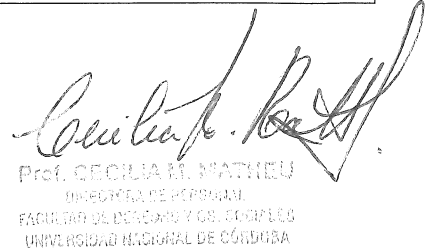 Cecilia
Prof. CECILIA M. MATHEU
DIRECTORA DE PERSONAL
FACULTAD DE DERECHO Y CS. SOCIALES
UNIVERSIDAD NACIONAL DE CÓRDOBA